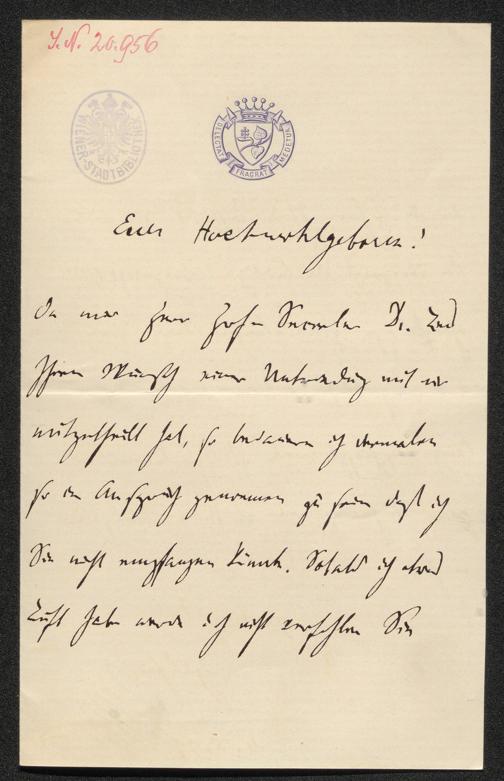 I. N. 20.956
WIENER-STADTBIBLIOTHEK
DELECTAT FRAGRAT MEDETUR
Euer Hochwohlgeboren!
Da mir Herr Dr.
Ihren Wunsch einer Unterredung mit mir
mitgetheilt hat, so bedauere ich dermalen
so in Anspruch genommen zu sein daß ich
Sie nicht empfangen könnte. Sobald ich etwas
Luft habe werde ich nicht verfehlen Sie